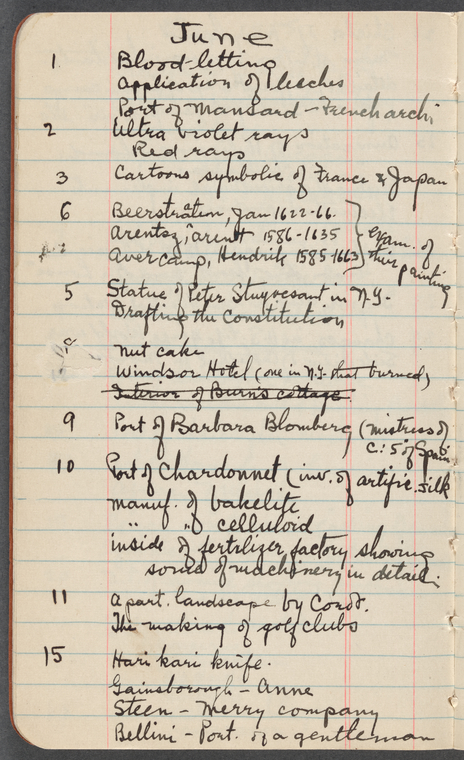 June
1 Blood-letting
Application of leeches
Port of Mansard - French archi
2 Ultra violet rays
Red rays
3 Cartoons symbolic of France & Japan
6 Beerstraten, Jan 1622-66.
Arentsz, arent 1586-1635
Avercamp, Hendrik 1585-1663
Exam. of their painting
5 Statue of Peter Stuyvesant in N.Y.
Drafting the Constitution
8 nut cake
Windsor Hotel (one in N.Y. that burned)
Interior of Burns cottage.
9 Port of Barbara Blomberg (mistress of
C: 5 of Spain
10 Port of Chardonnet (inv. of artific. silk
manuf. of bakelite
" " of celluloid
inside of fertilizer factory showing
some of machinery in detail.
11 a part. landscape by Corot.
The making of golf clubs
15 Hari kari knife.
Gainsborough - Anne
Steen - Merry company
Bellini - Port. of a gentleman